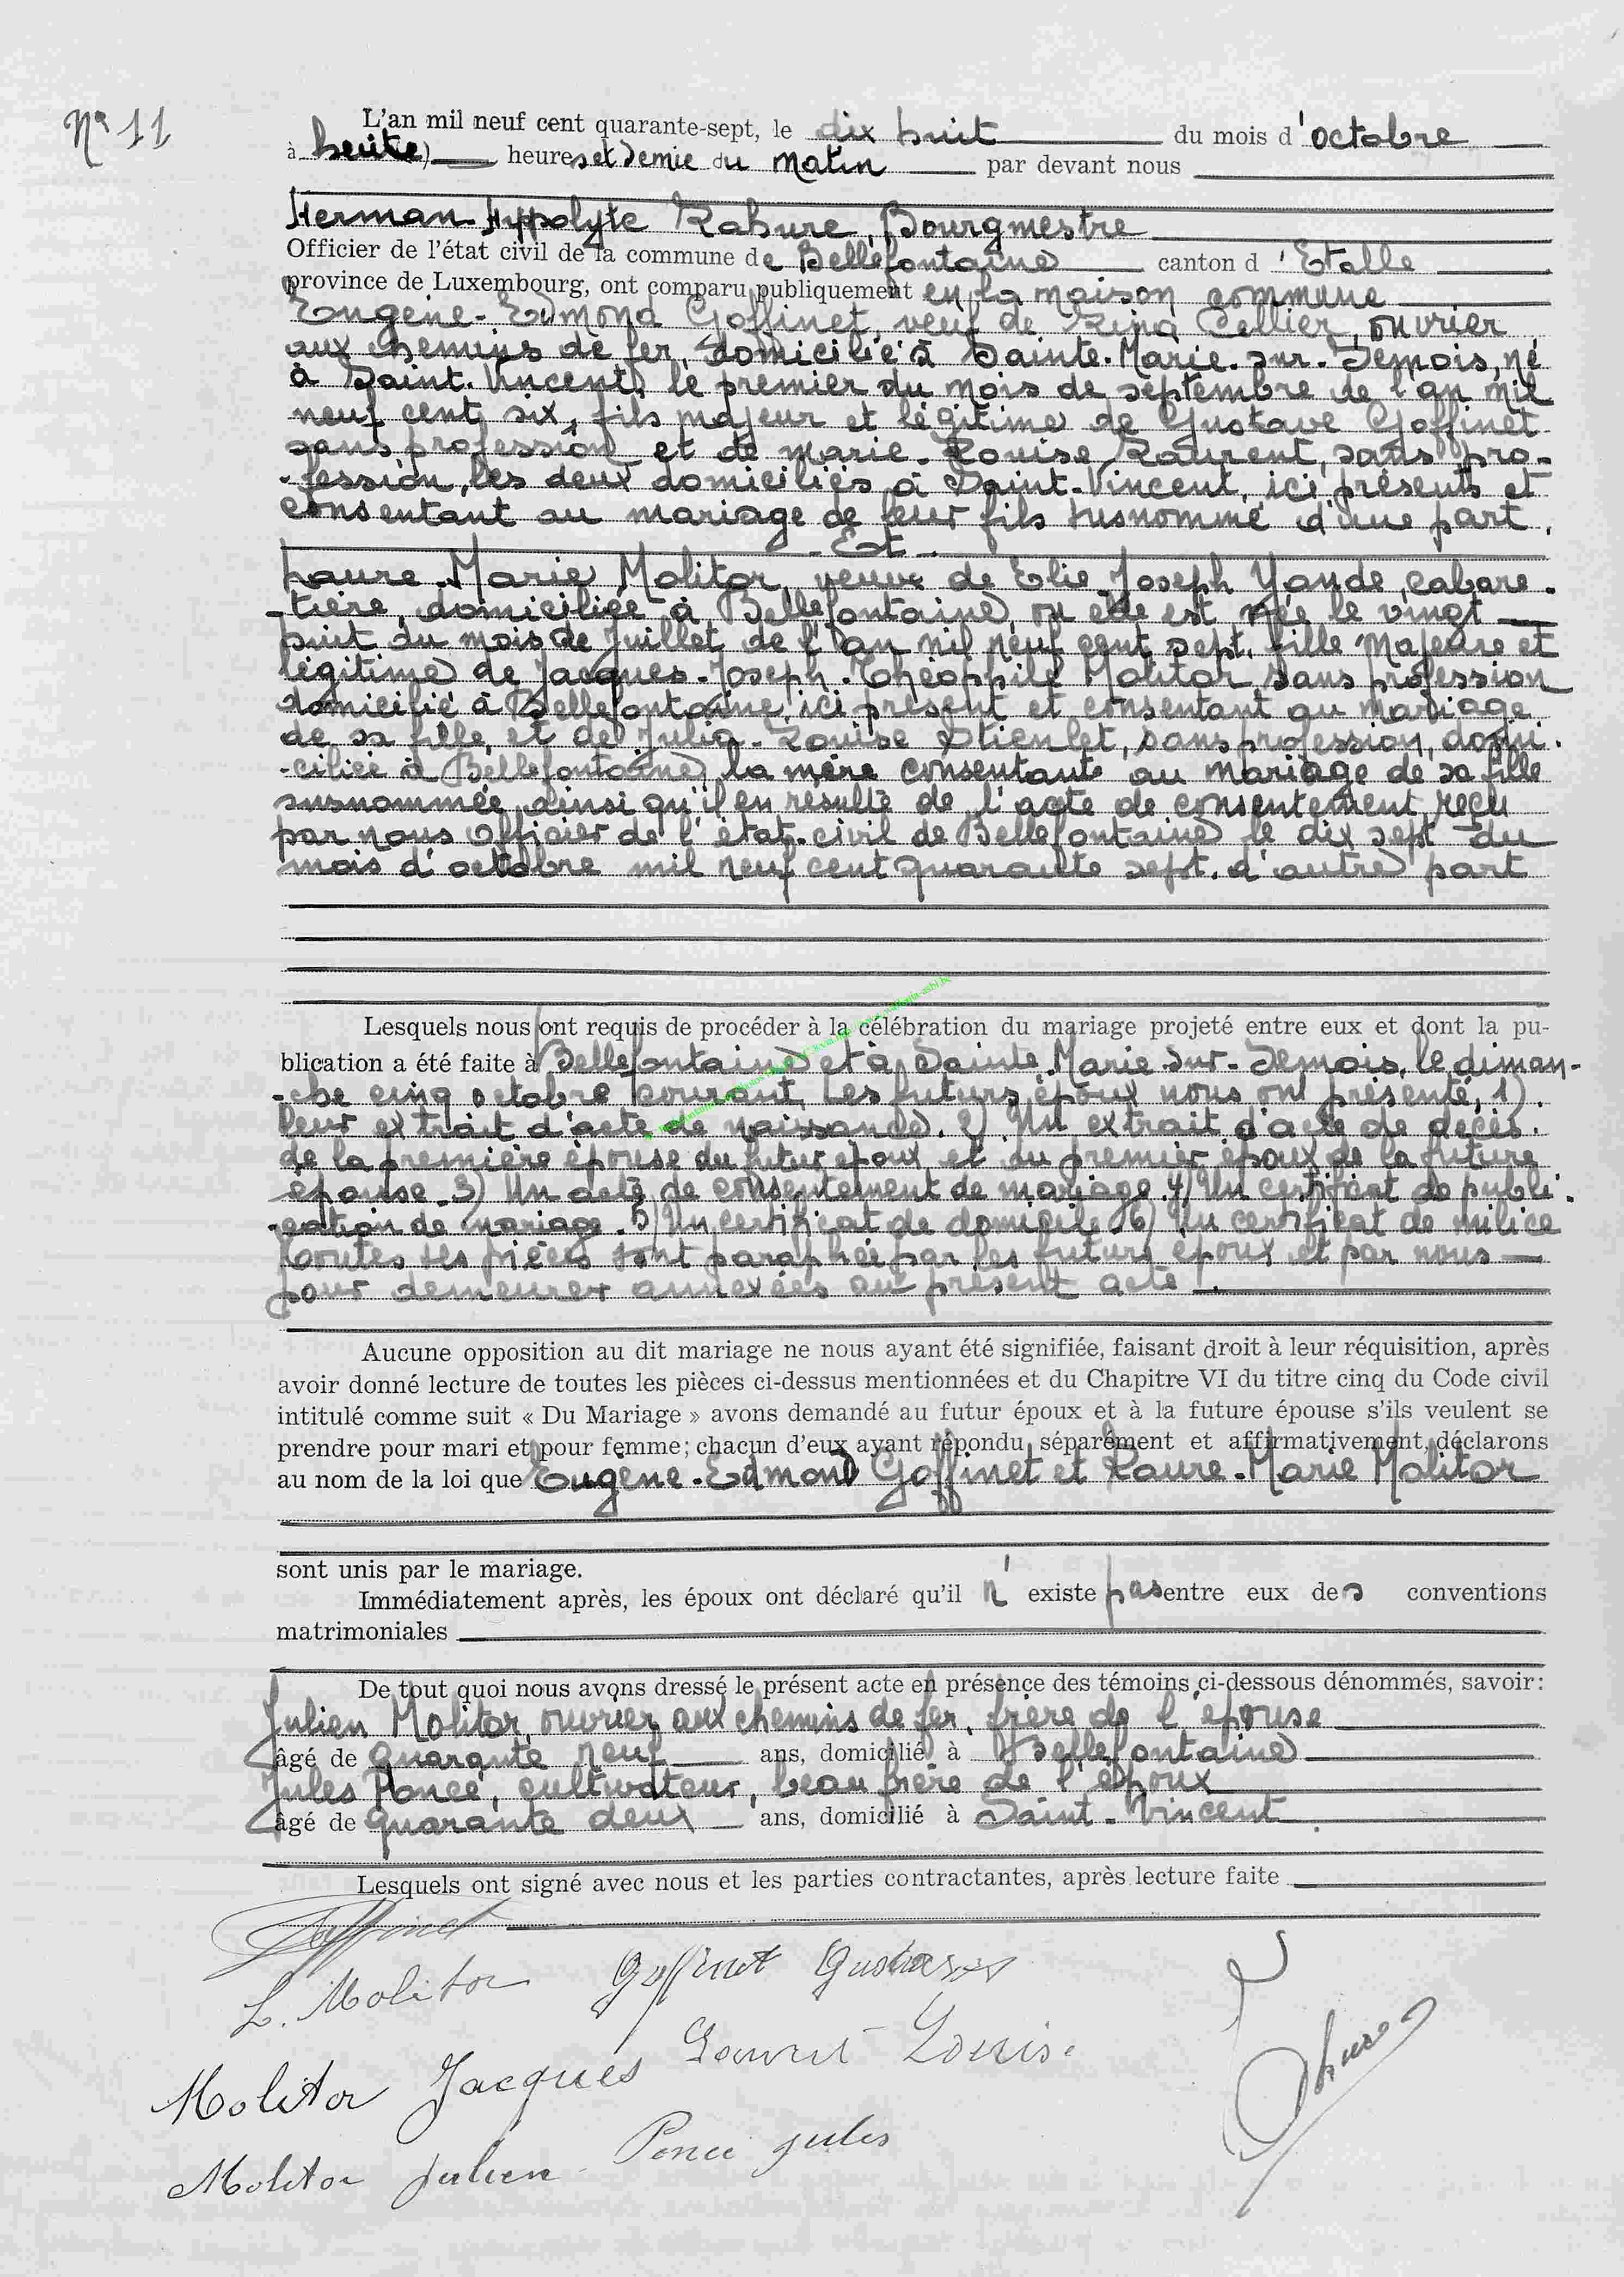 Nº 11
L'an mil neuf cent quarante-sept, le dix huit du mois d'octobre
à heures et demie du matin par devant nous
Herman-Hyppolyte Lahure, Bourgmestre
Officier de l'état civil de la commune de Bellefontaine canton d'Etalle
province de Luxembourg, ont comparu publiquement en la maison commune
Eugène-Edmond Goffinet, veuf de Cellier, ouvrier
aux chemins de fer, domicilié à Sainte-Marie-sur-Semois, né
à Saint-Vincent, le premier du mois de septembre de l'an mil
neuf cent six, fils majeur et légitime de Gustave Goffinet
sans profession et de Marie-Louise Laurent, sans pro-
-fession, les deux domiciliés à Saint-Vincent, ici présents et
consentant au mariage de leur fils susnommé d'une part.
- Et -
Laure-Marie Molitor, veuve de Elie-Joseph Yande, cabare-
-tière, domiciliée à Bellefontaine, ou elle est née le vingt
huit du mois de Juillet de l'an mil neuf cent sept, fille majeure et
légitime de Jacques-Joseph-Théophile Molitor, sans profession
domicilié à Bellefontaine, ici présent et consentant au mariage
de sa fille, et de Julia-Louise Stienlet, sans profession, domi-
-ciliée à Bellefontaine, la mère consentante au mariage de sa fille
susnommée, ainsi qu'il en résulte de l'acte de consentement reçu
par nous Officier de l'état-civil de Bellefontaine le dix sept du
mois d'octobre mil neuf cent quarante sept. d'autre part
Lesquels nous ont requis de procéder à la célébration du mariage projeté entre eux et dont la pu-
blication a été faite à Bellefontaine et à Sainte Marie-sur-Semois, le diman-
-che cinq octobre courant. Les futurs époux nous ont présenté, 1)
leur extrait d'acte de naissance. 2) Un extrait d'acte de décès.
de la première épouse du futur époux et du premier époux de la future
épouse. 3) Un acte de consentement de mariage. 4) Un certificat de publi-
-cation de mariage. 5) Un certificat de domicile. 6) Un certificat de milice
toutes ces pièces sont paraphée par les futurs époux et par nous
pour demeurer annexées au présent acte.
Aucune opposition au dit mariage ne nous ayant été signifiée, faisant droit à leur réquisition, après
avoir donné lecture de toutes les pièces ci-dessus mentionnées et du Chapitre VI du titre cinq du Code civil
intitulé comme suit « Du Mariage » avons demandé au futur époux et à la future épouse s'ils veulent se
prendre pour mari et pour femme; chacun d'eux ayant répondu séparément et affirmativement, déclarons
au nom de la loi que Eugène-Edmond Goffinet et Laure-Marie Molitor
sont unis par le mariage.
Immédiatement après, les époux ont déclaré qu'il n'existe pas entre eux des conventions
matrimoniales
De tout quoi nous avons dressé le présent acte en présence des témoins ci-dessous dénommés, savoir:
Julien Molitor, ouvrier aux chemins de fer, frère de l'épouse
âgé de quarante neuf ans, domicilié à Bellefontaine
Jules Poncé, cultivateur, beau frère de l'époux
âgé de quarante deux ans, domicilié à Saint-Vincent.
Lesquels ont signé avec nous et les parties contractantes, après lecture faite
Goffinet
L. Molitor Goffinet Gustave
Molitor Jacques Laurent Louise
Molitor Julien Poncé Jules
Lahure